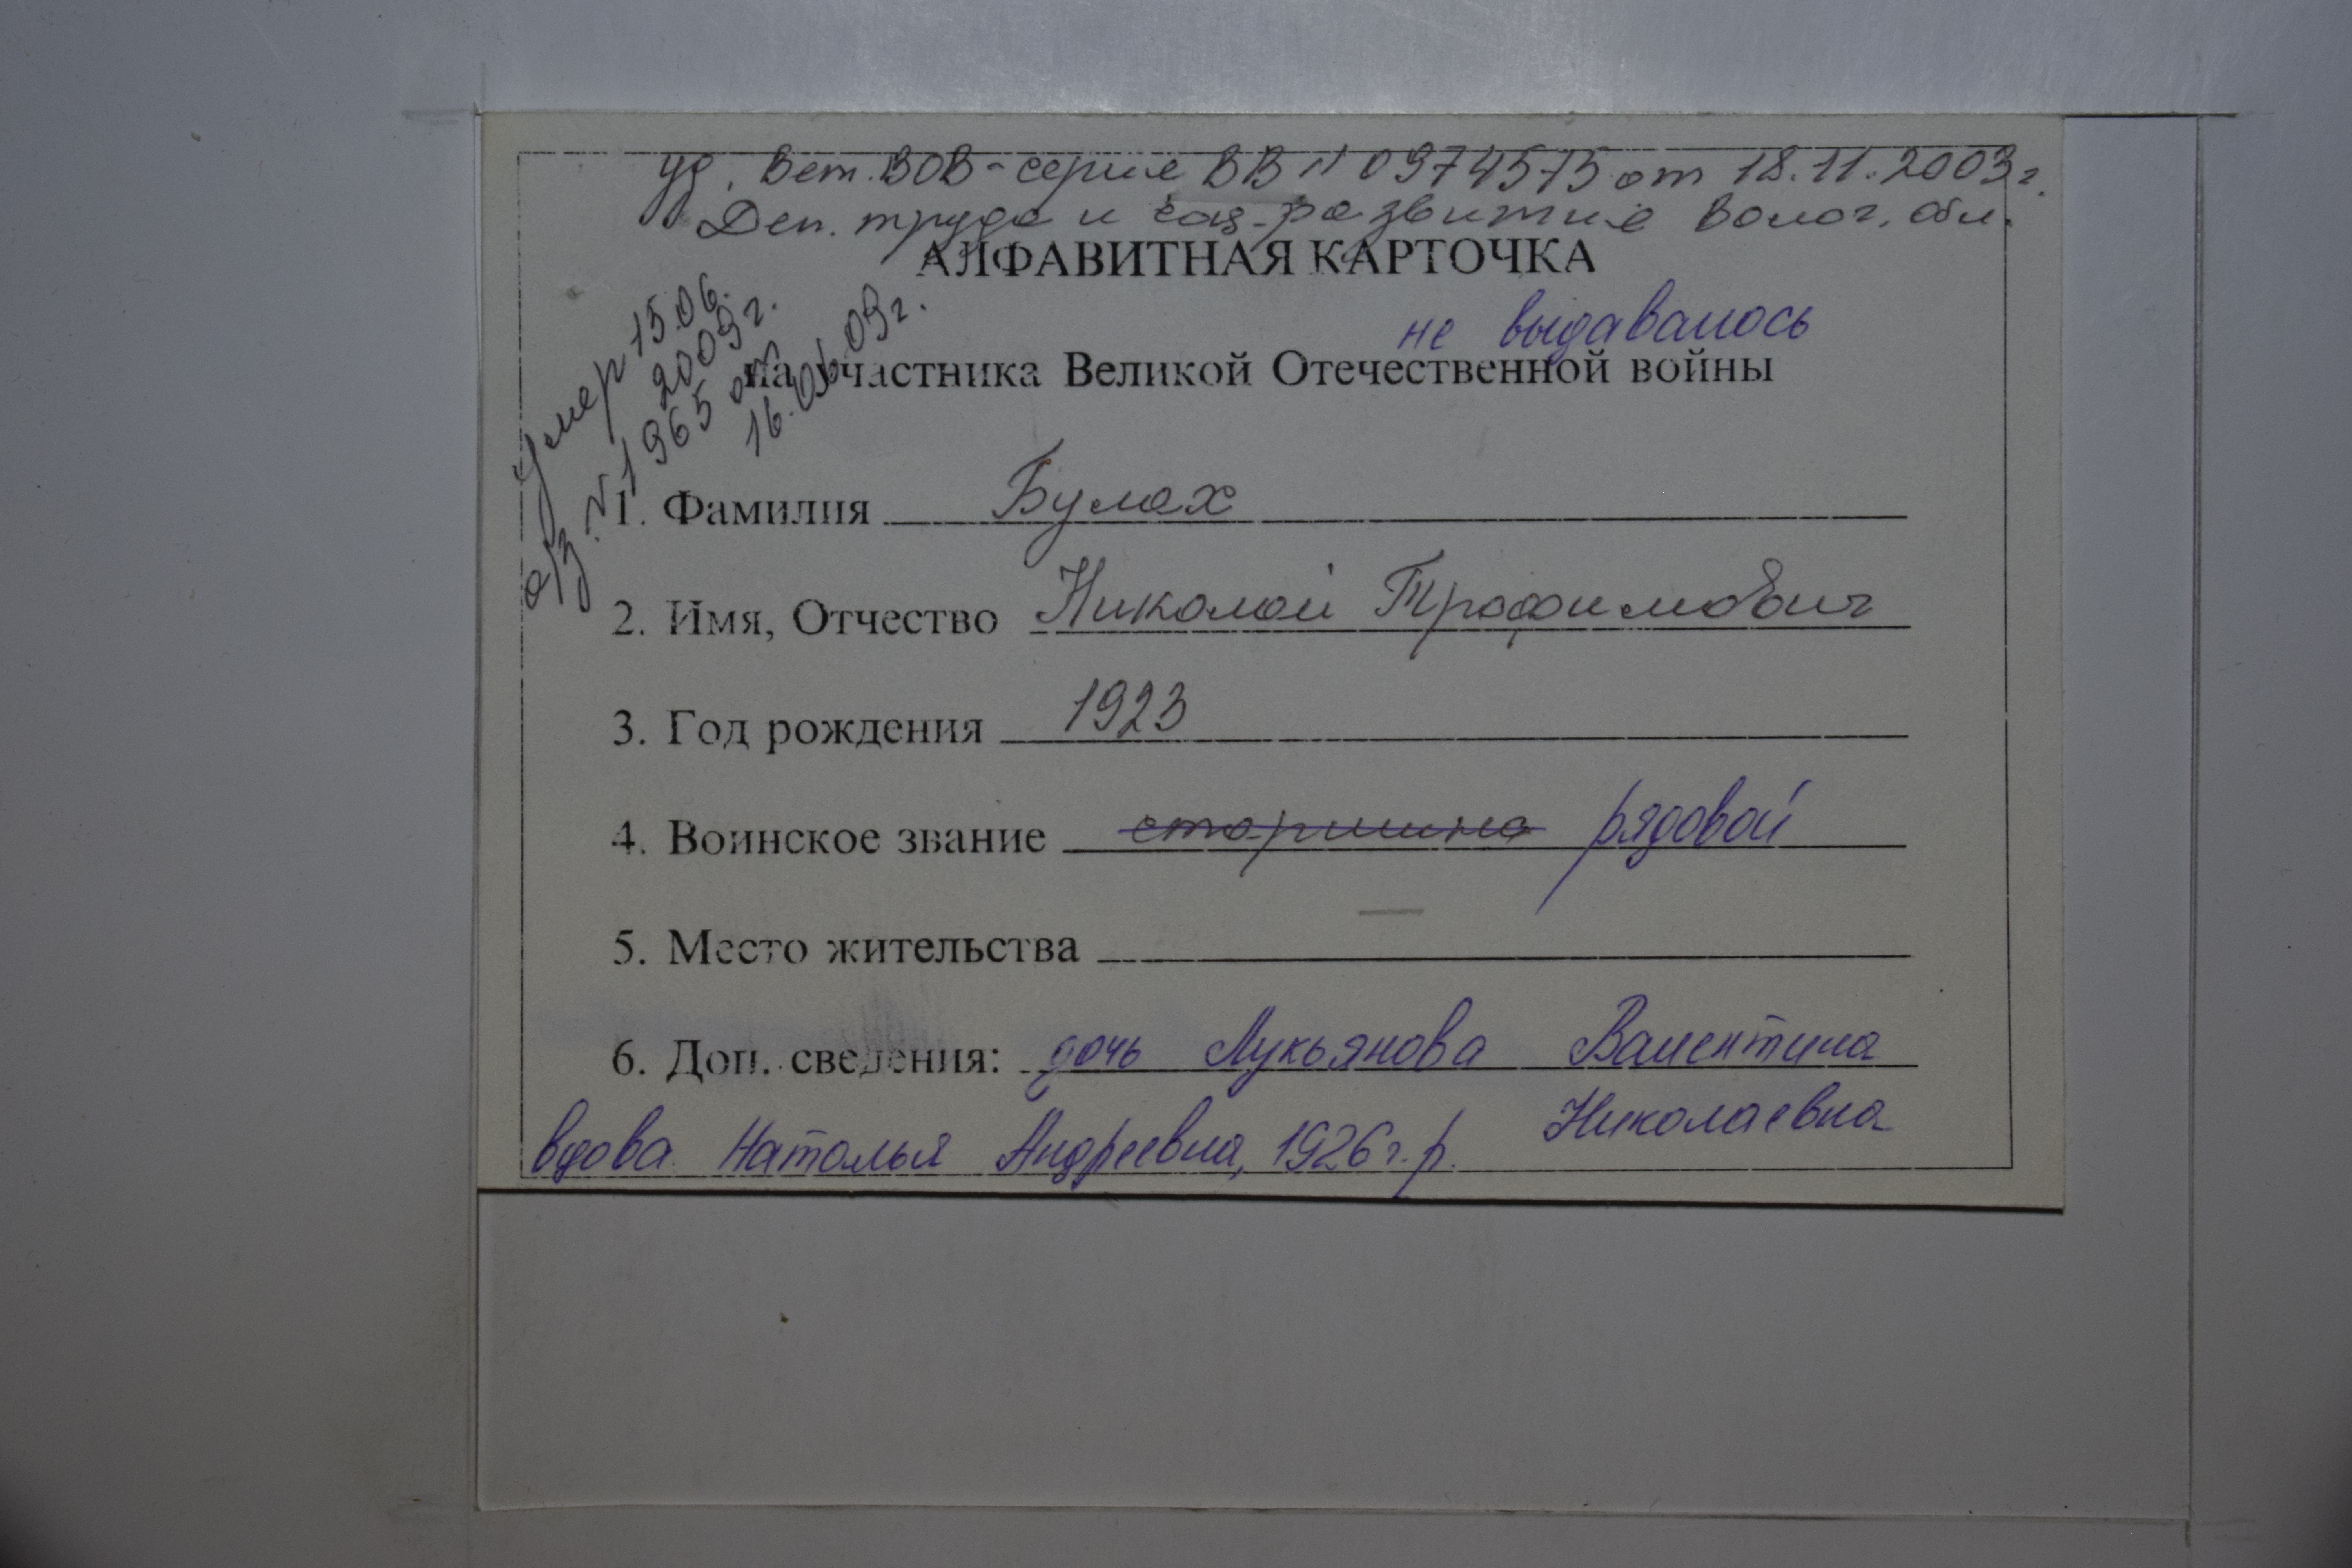 уд. Вет. ВОВ - серие ВВ N 0974575 от 18.11.2003г.
Деп. труда и соц. развитие Волог. обл.
АЛФАВИТНАЯ КАРТОЧКА
не выдавалось
на участника Великой Отечественной войны
Умер 15.06.
2009г.
а/з. N 1965 от
16.06.09г.
1. Фамилия Булах
2. Имя, Отчество Николай Трофимович
3. Год рождения 1923
4. Воинское звание старшина рядовой
5. Место жительства —
6. Доп. сведения: дочь Лукьянова Валентина
Николаевна
вдова Наталья Андреевна, 1926г.р.